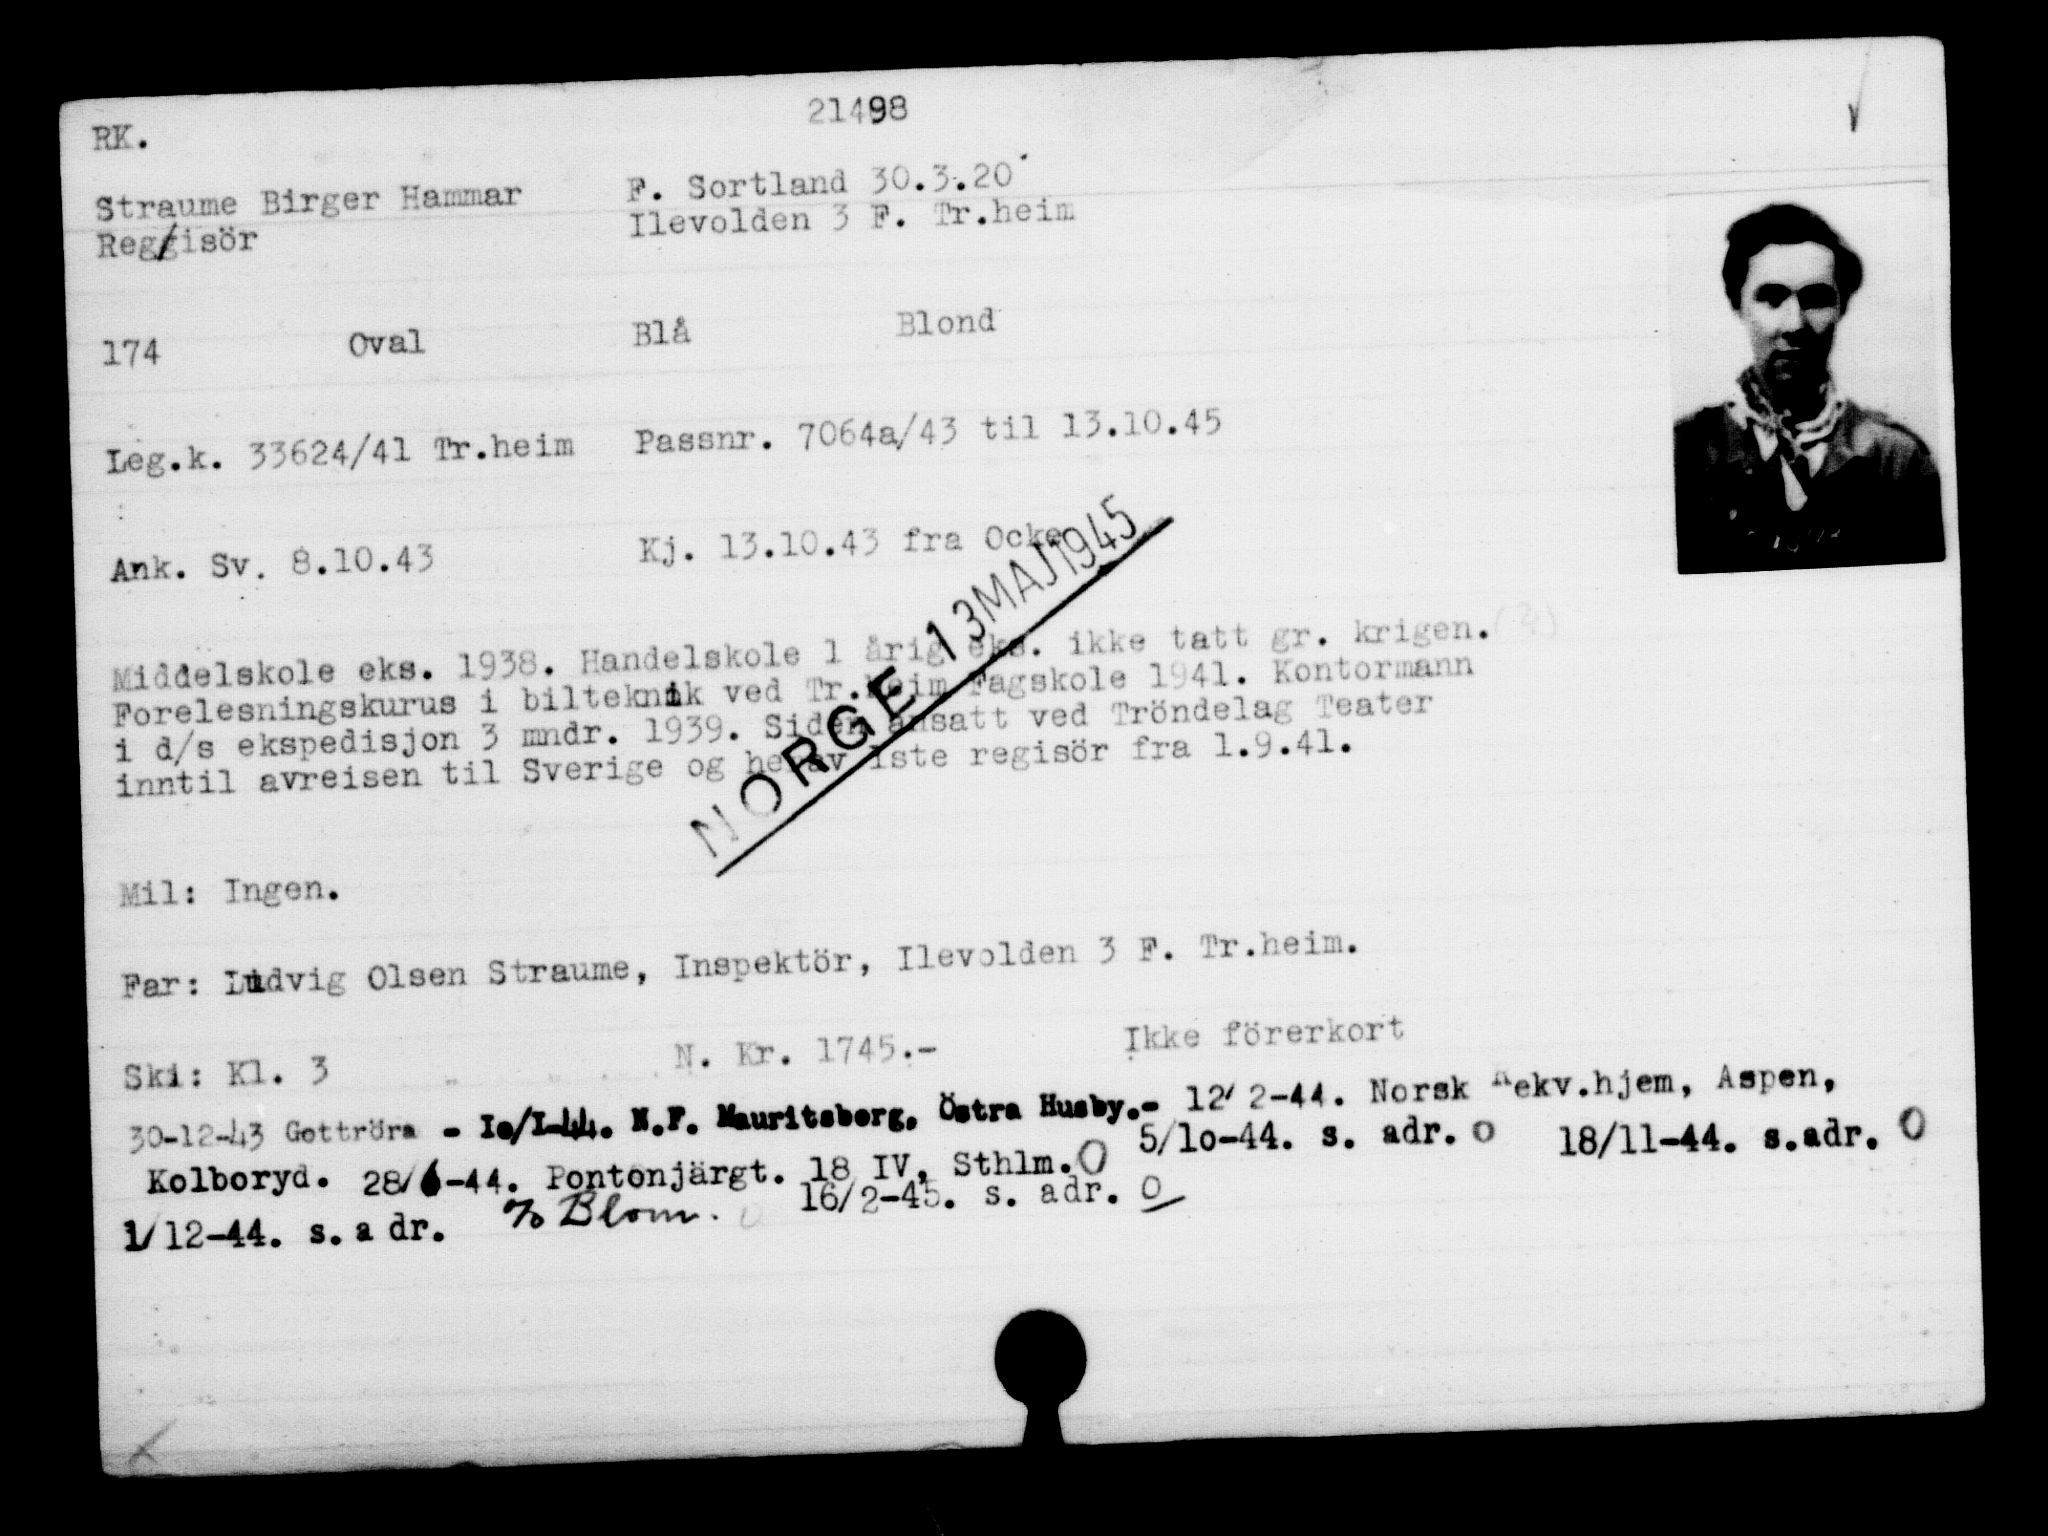 21498
RK.
Straume Birger Hammar F. Sortland 30.3.20
Regisör Ilevolden 3 F. Tr.heim
174 Oval Blå Blond
Leg.k. 33624/41 Tr.heim Passnr. 7064a/43 til 13.10.45
Ank. Sv. 8.10.43 Kj. 13.10.43 fra Ocke
NORGE 13 MAJ 1945
Middelskole eks. 1938. Handelskole 1 årig eks. ikke tatt gr. krigen.
Forelesningskurus i bilteknik ved Tr.heim Fagskole 1941. Kontormann
i d/s ekspedisjon 3 mndr. 1939. Siden ansatt ved Tröndelag Teater
inntil avreisen til Sverige og herav 1ste regisör fra 1.9.41.
Mil: Ingen.
Far: Ludvig Olsen Straume, Inspektör, Ilevolden 3 F. Tr.heim.
Ski: Kl. 3 N. Kr. 1745.- Ikke förerkort
30-12-43 Gottröra - Io/I-44. N.F. Mauritsberg, Östra Husby.- 12/2-44. Norsk Rekv.hjem, Aspen,
Kolboryd. 28/6-44. Pontonjärgt. 18 IV, Sthlm. O 5/lo-44. s. adr. O 18/11-44. s.adr. O
1/12-44. s. a dr. c/o Blom. O 16/2-45. s. adr. O